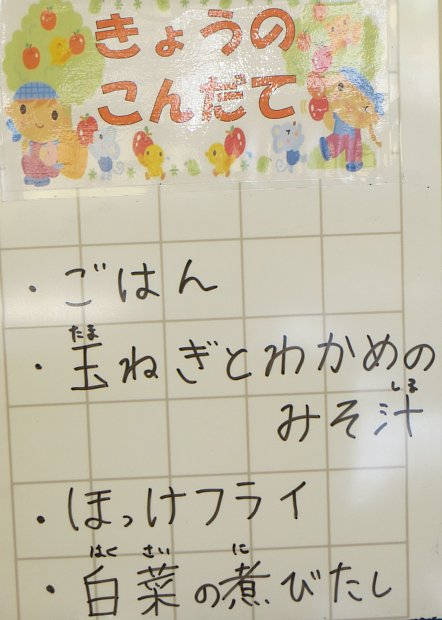 きょうの
こんだて
・ごはん
・玉ねぎとわかめの
みそ汁
・ほっけフライ
・白菜の煮びたし
たま
しる
はく さい に